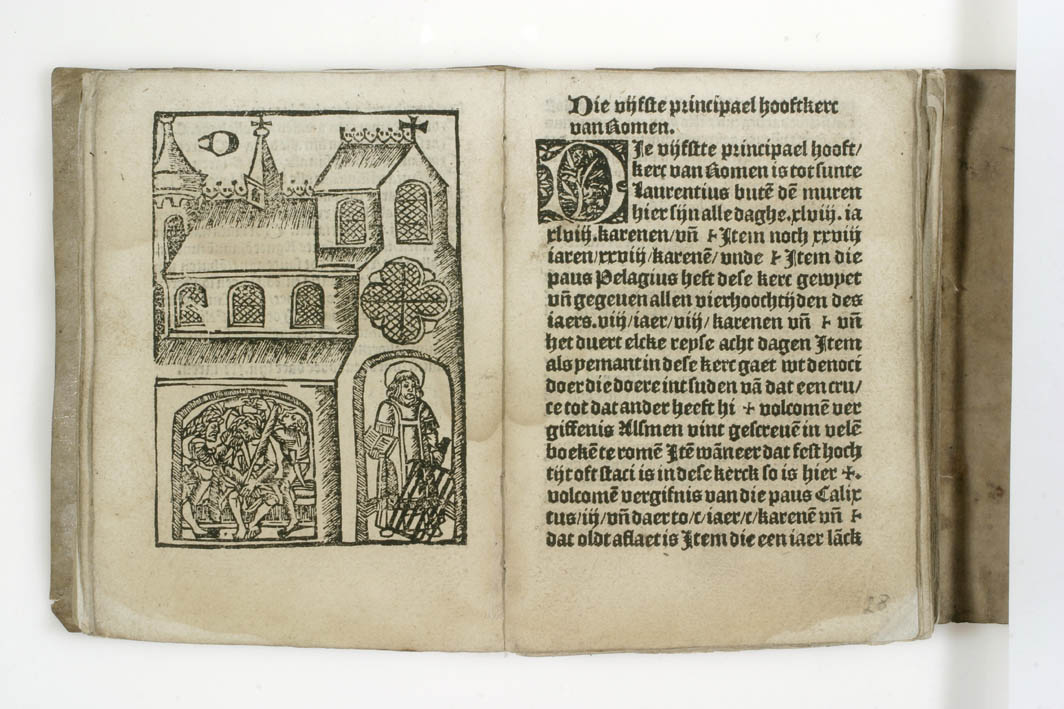 Die vijfste principael hooftkerc
van Romen.
DIe vijfstte principael hooft/
kerc van Romen is tot sunte
Laurentius butē dē muren
hier sijn alle daghe.xlviij. ia
xlviij.karenen/vñ Item noch xxviij
iaren/xxviij/karenē/vnde Item die
paus Pelagius heft dese kerc gewyet
vñ gegeuen allen vierhoochtijden des
iaers.viij/iaer/viij/karenen vñ vñ
het duert elcke reyse acht dagen Item
als yemant in dese kerc gaet wt den oci
doer die doere int suden vā dat een cru/
ce tot dat ander heeft hi + volcomē ver
giffenis Alsmen vint gescreuē in velē
boekē te romē Itē wāneer dat fest hoch
tijt oft staci is in dese kerck so is hier +.
volcomē vergifnis van die paus Calix
tus/iij/vñ daer to/c/iaer/c/karenē vñ
dat oldt aflaet is Item die een iaer lāck
28